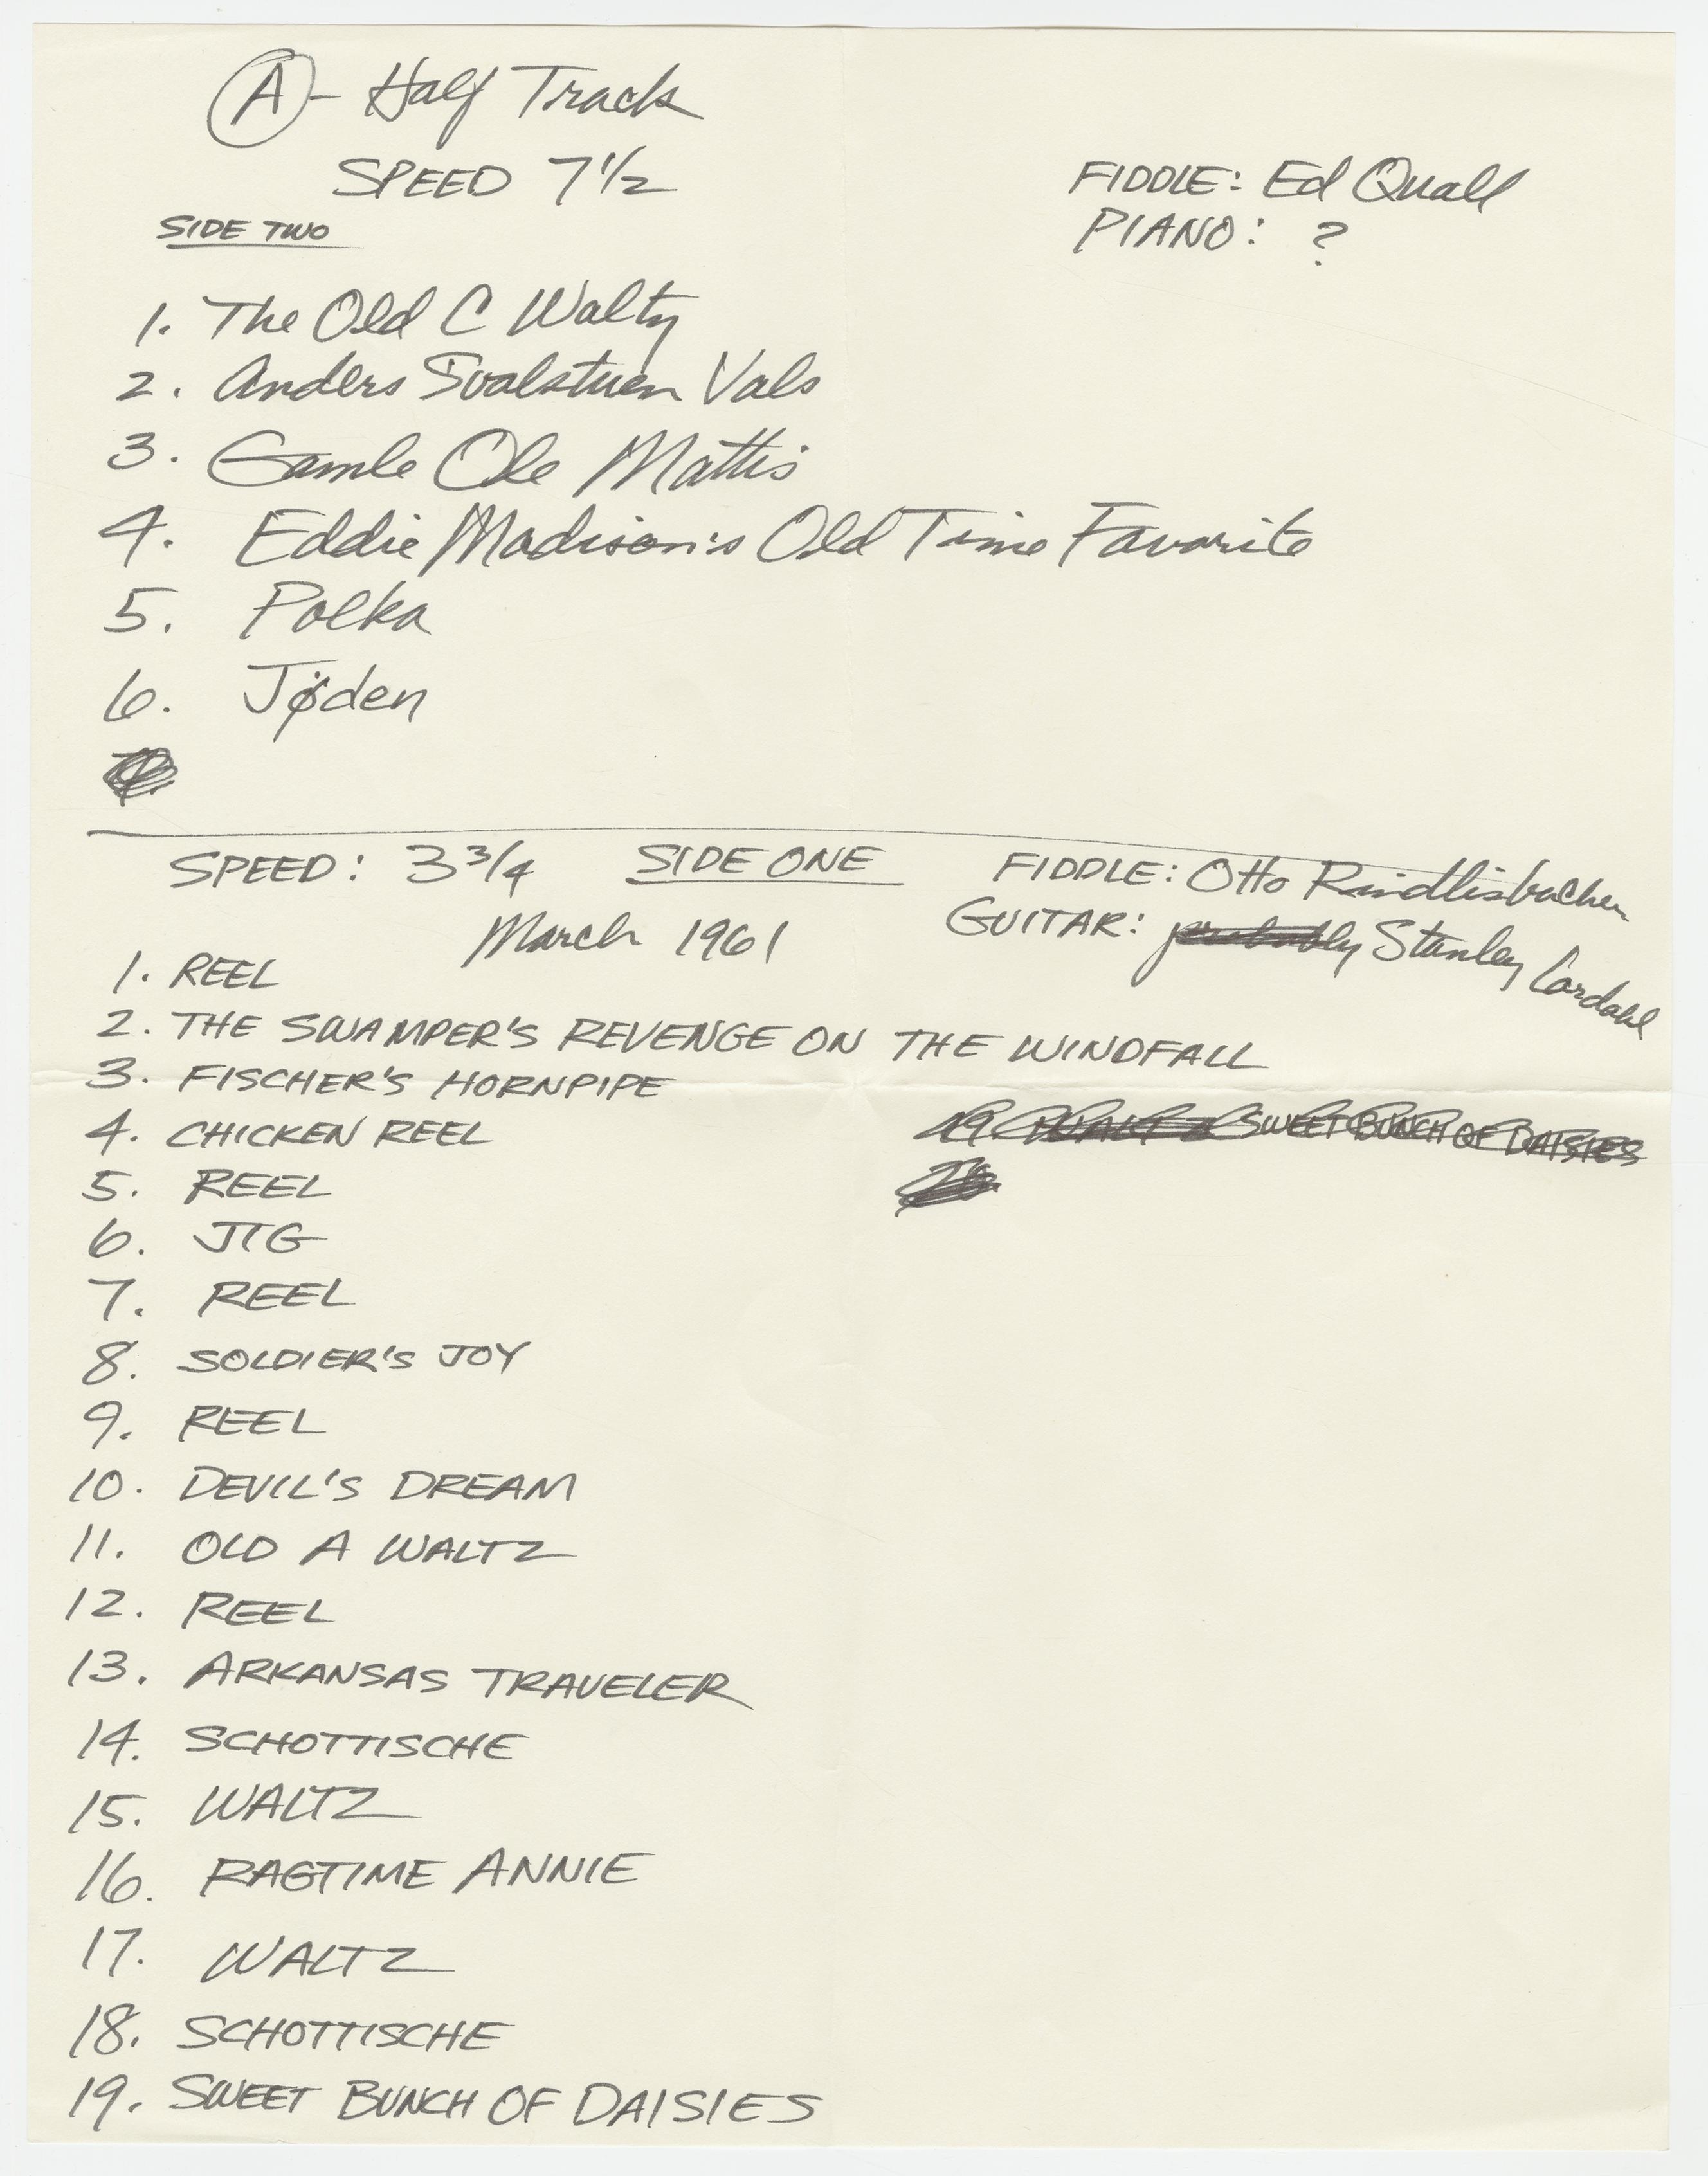 A - Half Track
SPEED 7 1/2
SIDE TWO
FIDDLE: Ed Quall
PIANO: ?
1. The Old C Waltz
2. Anders Svalstuen Vals
3. Gamle Ole Mattis
4. Eddie Madison's Old Time Favorite
5. Polka
6. Jøden
SPEED: 3 3/4 SIDE ONE
March 1961
FIDDLE: Otto Rindlisbacher
GUITAR: probably Stanley Cordahl
1. REEL
2. THE SWAMPER'S REVENGE ON THE WINDFALL
3. FISCHER'S HORNPIPE
4. CHICKEN REEL
19 SWEET BUNCH OF DAISIES
5. REEL
6. JIG
7. REEL
8. SOLDIER'S JOY
9. REEL
10. DEVIL'S DREAM
11. OLD A WALTZ
12. REEL
13. ARKANSAS TRAVELER
14. SCHOTTISCHE
15. WALTZ
16. RAGTIME ANNIE
17. WALTZ
18. SCHOTTISCHE
19. SWEET BUNCH OF DAISIES